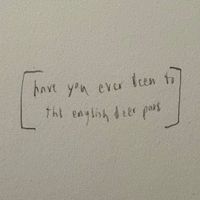 [have you ever been to
the english deer park]